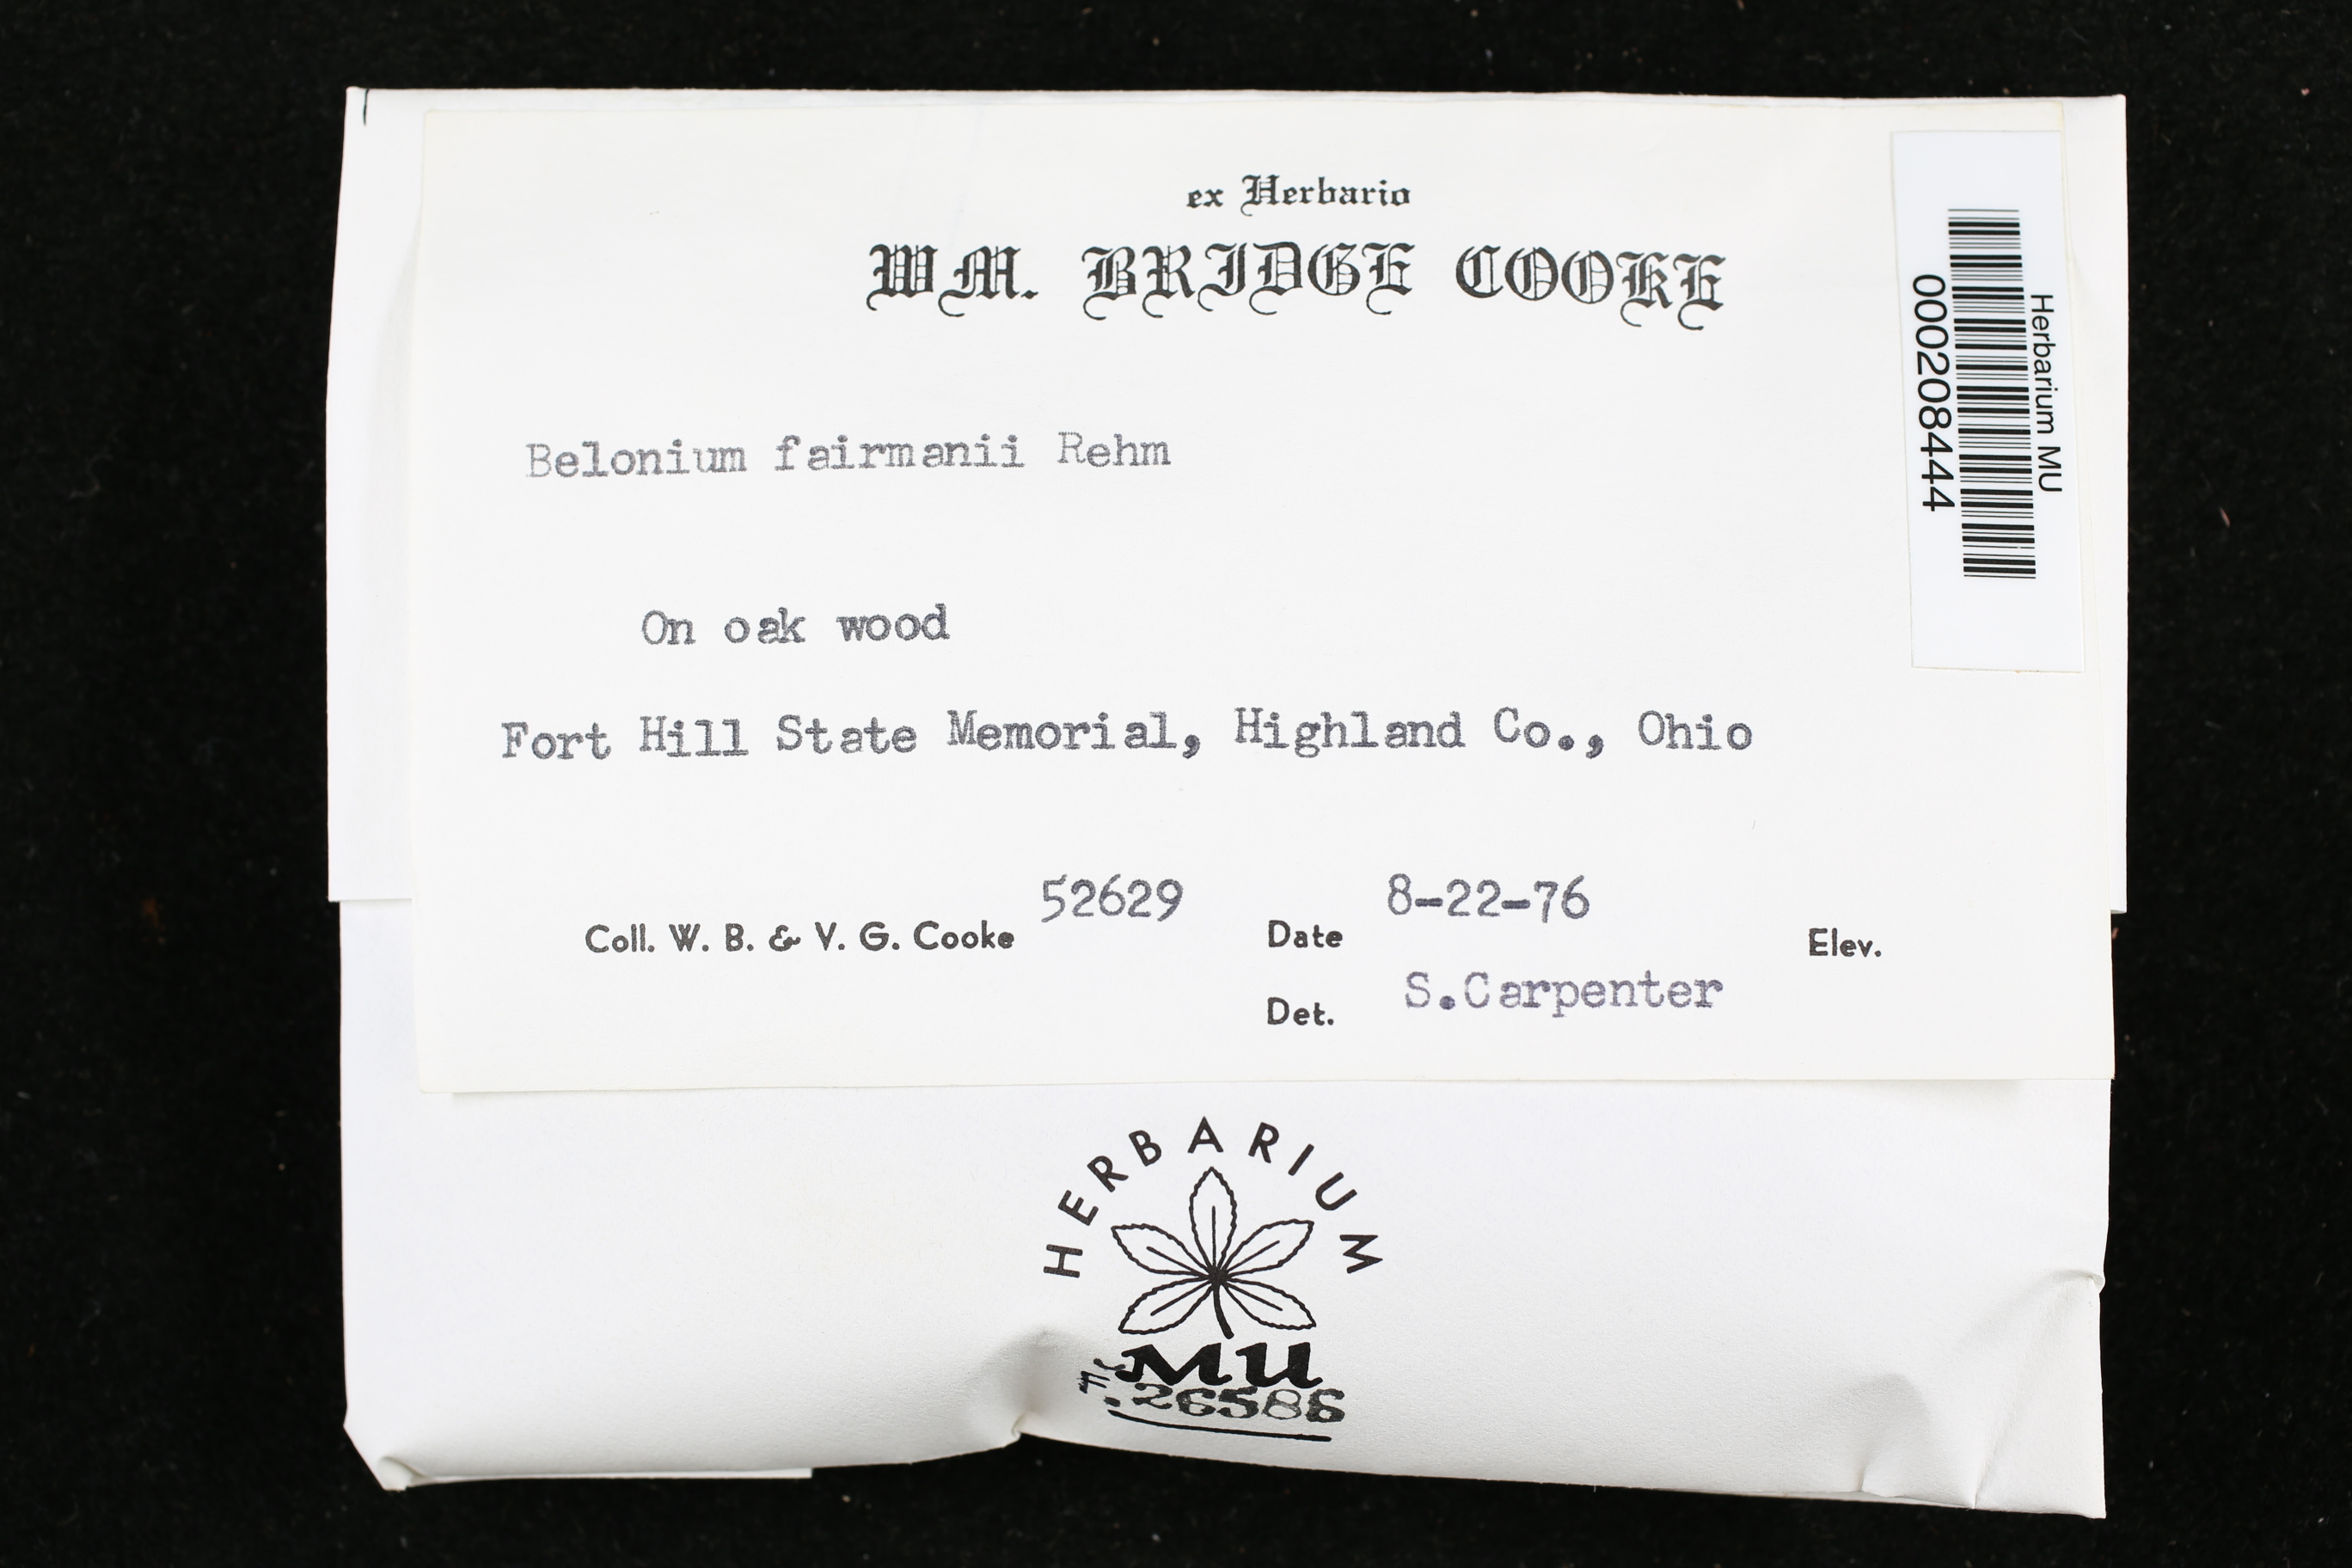 ex Herbario
WM. BRIDGE COOKE
Herbarium MU
000208444
Belonium fairmanii Rehm
On oak wood
Fort Hill State Memorial, Highland Co., Ohio
Coll. W. B. & V. G. Cooke 52629 Date 8-22-76 Elev.
Det. S.Carpenter
HERBARIUM
MU
F. 26586